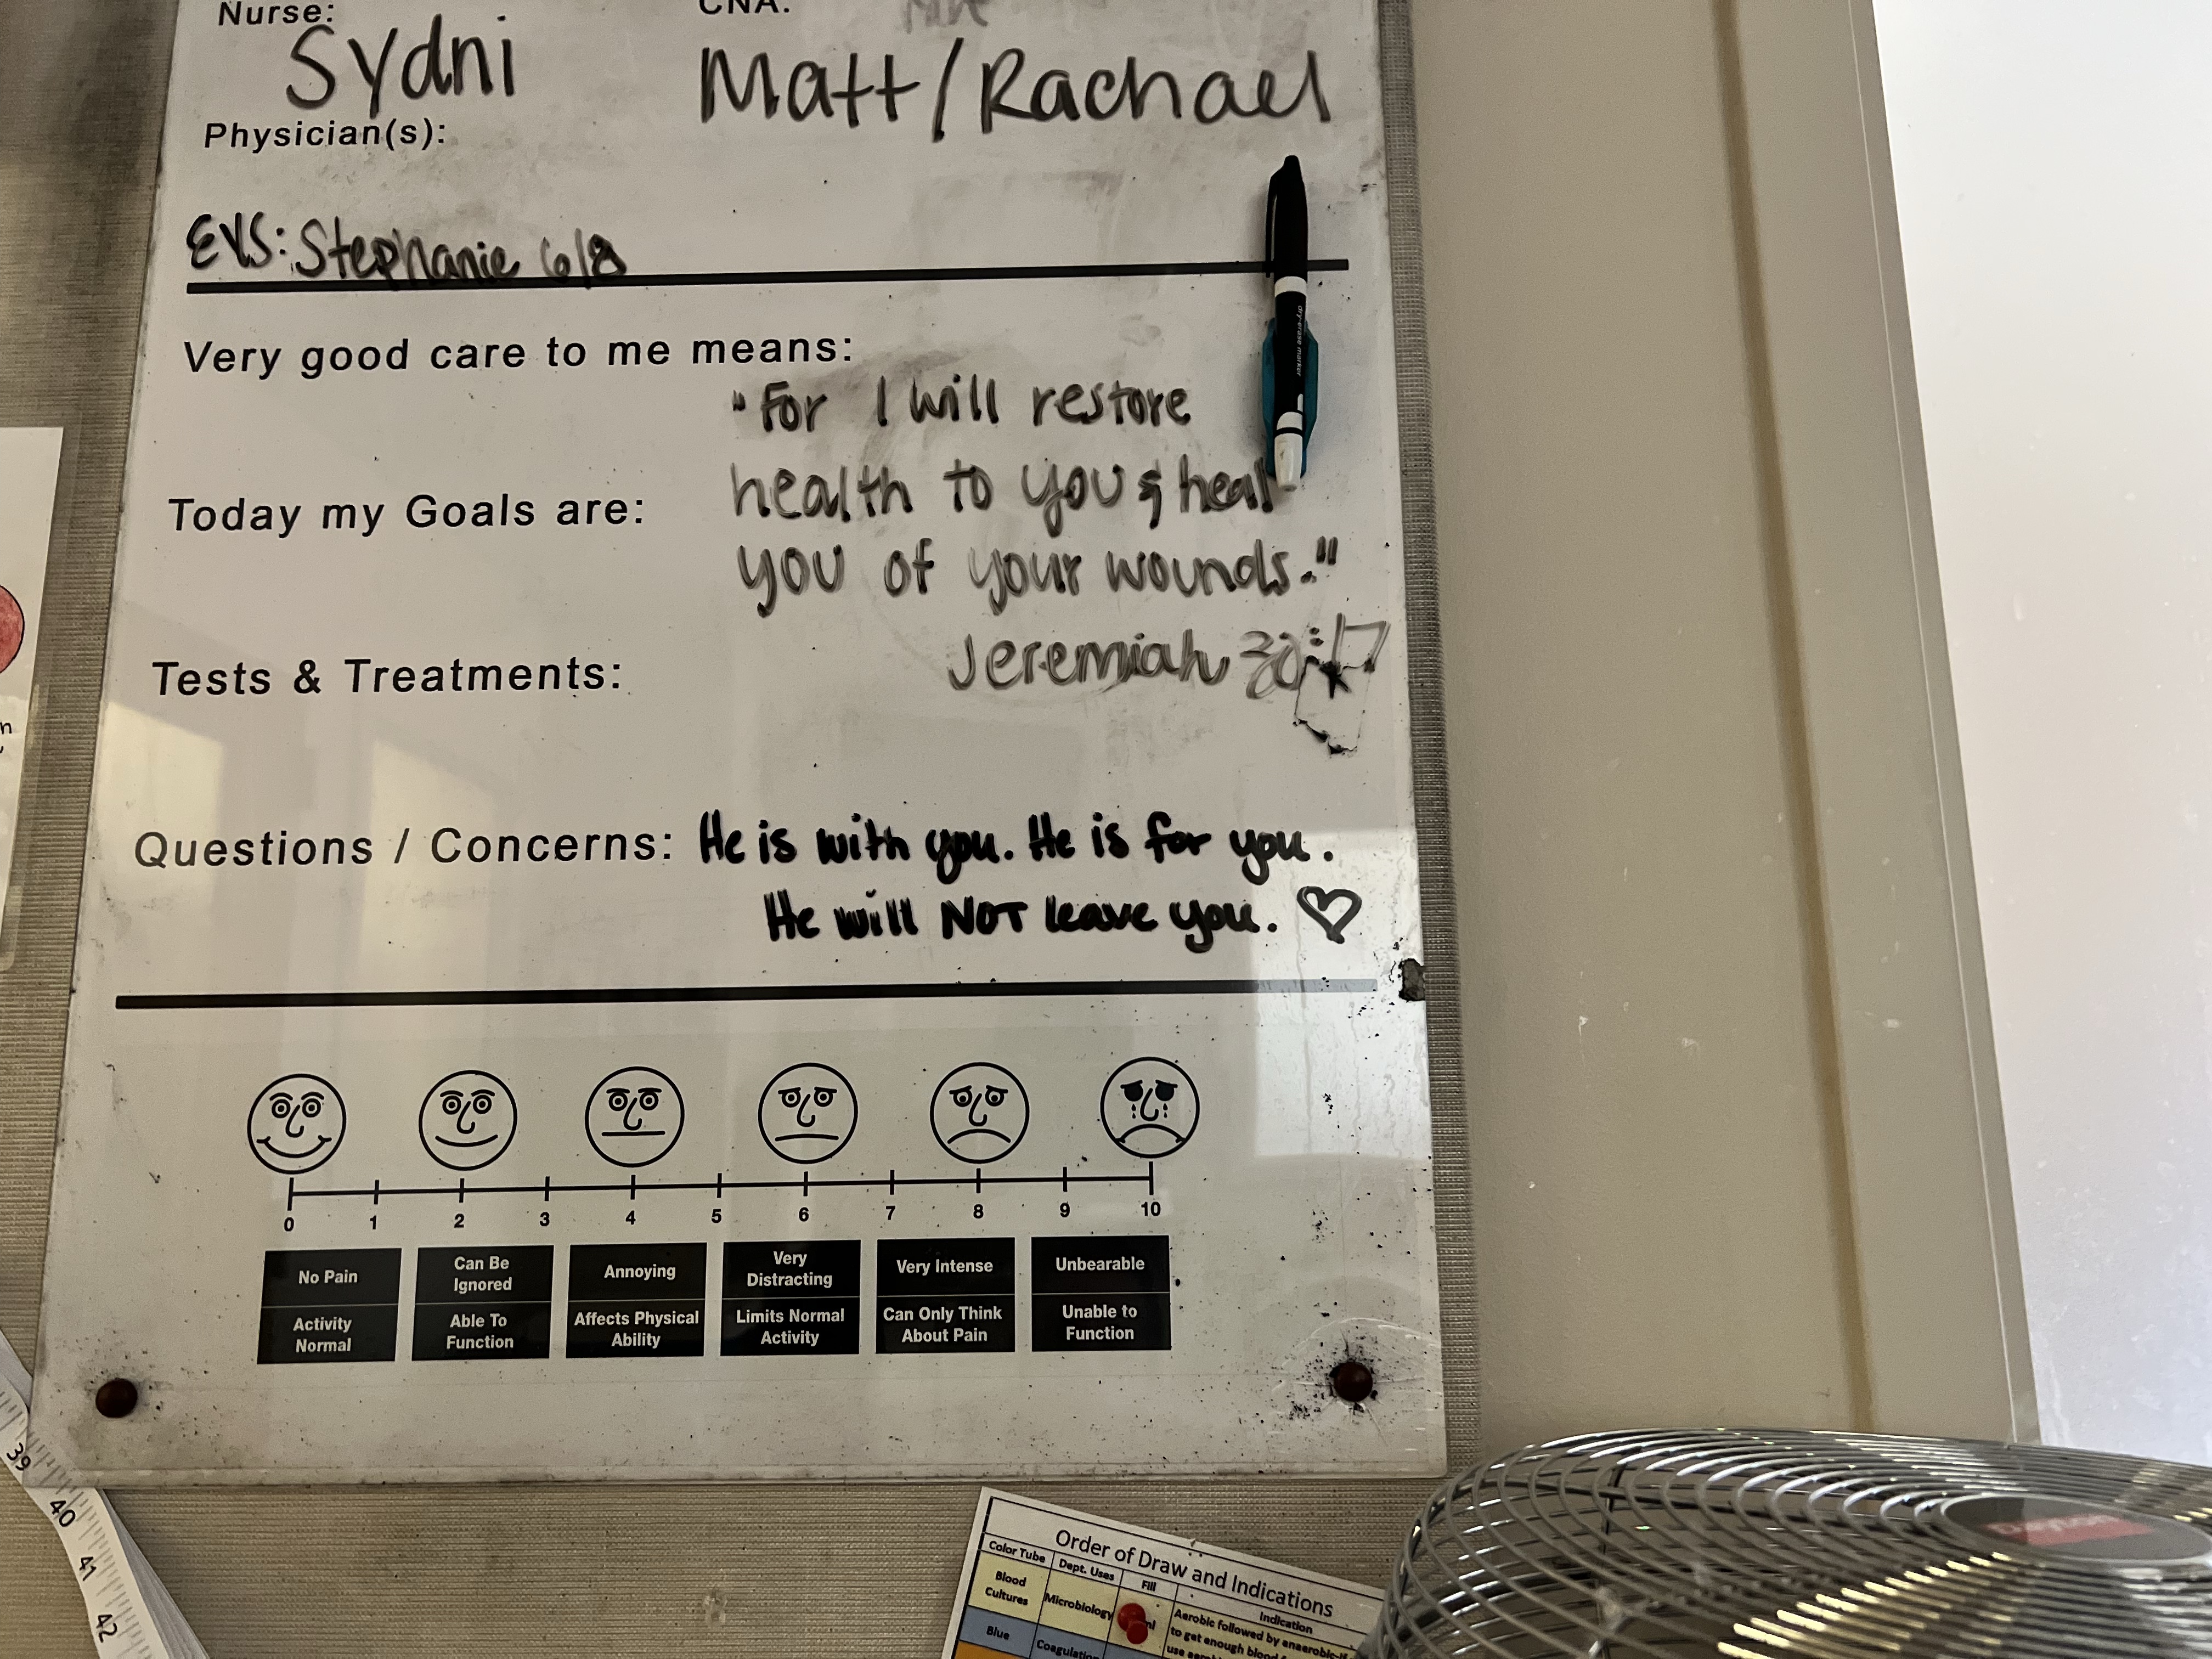 Nurse: CNA:
Sydni Matt/Rachael
Physician(s):
EVS: Stephanie 6/8
Very good care to me means:
"For I will restore
Today my Goals are: health to you & heal
you of your wounds."
Tests & Treatments: Jeremiah 30:17
Questions / Concerns: He is with you. He is for you.
He will NOT leave you. ♡
0 1 2 3 4 5 6 7 8 9 10
No Pain
Activity
Normal
Can Be
Ignored
Able To
Function
Annoying
Affects Physical
Ability
Very
Distracting
Limits Normal
Activity
Very Intense
Can Only Think
About Pain
Unbearable
Unable to
Function
dry-erase marker
39
40
41
42
Order of Draw and Indications
Color Tube Dept. Uses Fill Indication
Blood
Cultures
Microbiology
Aerobic followed by anaerobic-if
to get enough blood
Blue
Coagulation